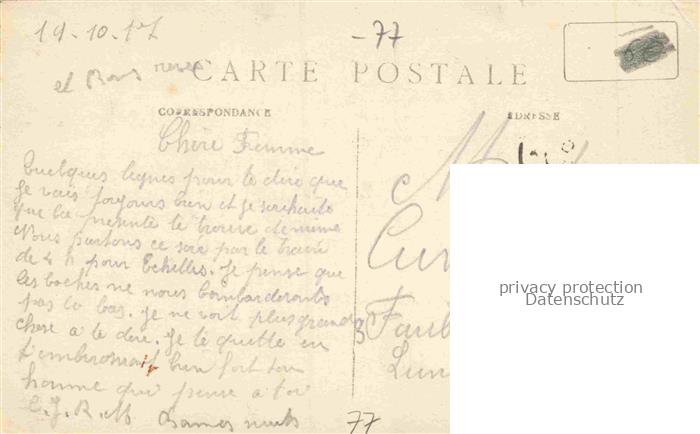 19-10-17
-77
et Bons
CARTE POSTALE
CORRESPONDANCE
ADRESSE
Chère Femme
Quelques lignes pour te dire que
je vais toujours bien et je souhaite
que la présente te trouve de même
Nous partons ce soir par le train
de 4 h pour Echelles. Je pense que
les boches ne nous bombarderont
pas la bas. je ne voit plus grand
chose a te dire. Je te quitte en
t'embrassant bien fort ton
homme qui pense a toi
77
privacy protection
Datenschutz